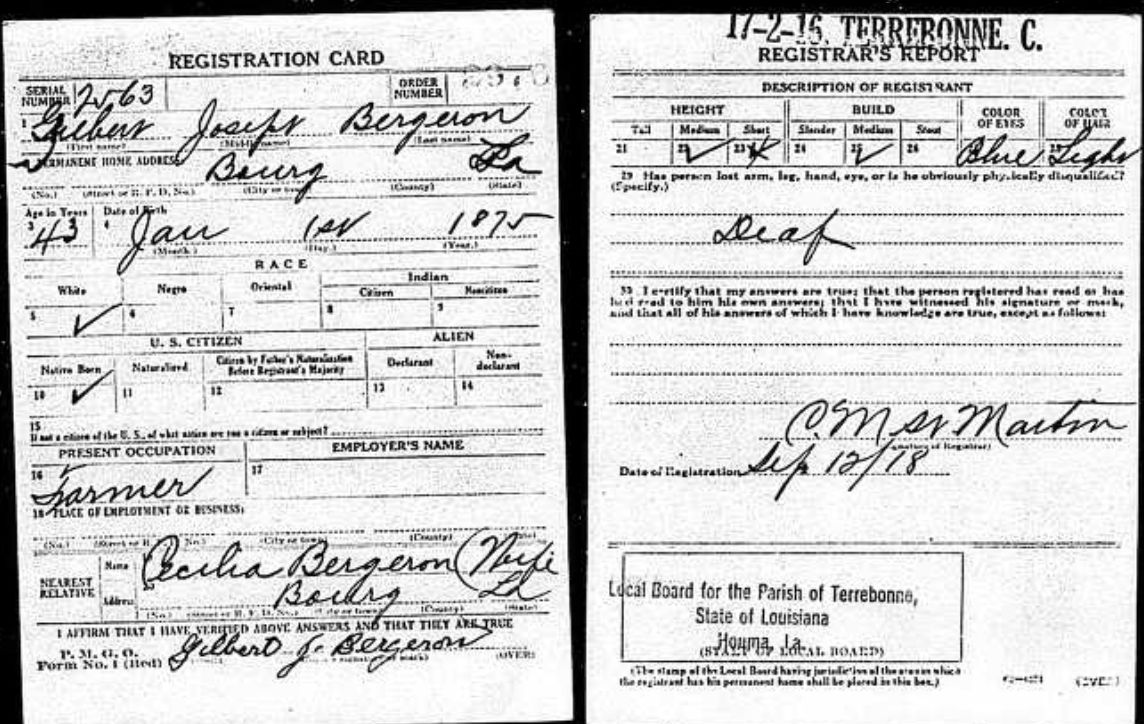 REGISTRATION CARD
SERIAL NUMBER 2563 ORDER NUMBER
1 Gilbert Joseph Bergeron
(First name) (Middle name) (Last name)
2 PERMANENT HOME ADDRESS:
Bourg La
(No.) (Street or R. F. D. No.) (City or town) (County) (State)
Age in Years Date of Birth
3 43 4 Jan 1st 1875
(Month.) (Day.) (Year.)
RACE
White Negro Oriental Indian
Citizen Noncitizen
5 ✓ 6 7 8 9
U. S. CITIZEN ALIEN
Native Born Naturalized Citizen by Father's Naturalization Before Registrant's Majority Declarant Non-declarant
10 ✓ 11 12 13 14
15
If not a citizen of the U. S., of what nation are you a citizen or subject?
PRESENT OCCUPATION EMPLOYER'S NAME
16 Farmer 17
18 PLACE OF EMPLOYMENT OR BUSINESS:
(No.) (Street or R. F. D. No.) (City or town) (County) (State)
NEAREST RELATIVE Name Cecilia Bergeron (Wife
Address 20 Bourg La
(No.) (Street or R. F. D. No.) (City or town) (County) (State)
I AFFIRM THAT I HAVE VERIFIED ABOVE ANSWERS AND THAT THEY ARE TRUE
P. M. G. O.
Form No. 1 (Red) Gilbert J. Bergeron (OVER)
17-2-16. TERREBONNE. C.
REGISTRAR'S REPORT
DESCRIPTION OF REGISTRANT
HEIGHT BUILD COLOR OF EYES COLOR OF HAIR
Tall Medium Short Slender Medium Stout
21 22 ✓ 23 24 25 ✓ 26 Blue Light
29 Has person lost arm, leg, hand, eye, or is he obviously physically disqualified?
(Specify.)
Deaf
30 I certify that my answers are true; that the person registered has read or has
had read to him his own answers; that I have witnessed his signature or mark,
and that all of his answers of which I have knowledge are true, except as follows:
C. M St Martin
(Signature of Registrar)
Date of Registration Sep 12/18
Local Board for the Parish of Terrebonne,
State of Louisiana
Houma, La.
(STAMP OF LOCAL BOARD)
(The stamp of the Local Board having jurisdiction of the area in which
the registrant has his permanent home shall be placed in this box.)
(OVER)